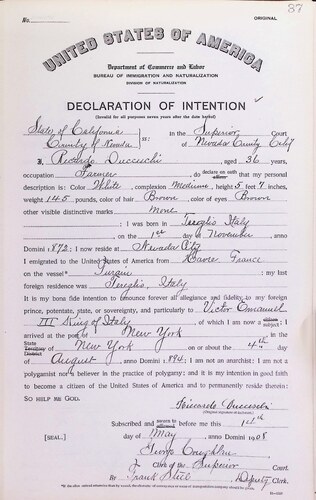 No.
ORIGINAL
37
UNITED STATES OF AMERICA
Department of Commerce and Labor
BUREAU OF IMMIGRATION AND NATURALIZATION
DIVISION OF NATURALIZATION
DECLARATION OF INTENTION
(Invalid for all purposes seven years after the date hereof)
State of California
County of Nevada ss: In the Superior Court of Nevada County Calif
I, Riccardo Ducceschi, aged 36 years,
occupation Farmer, do declare on oath that my personal
description is: Color White, complexion Medium, height 5 feet 7 inches,
weight 145 pounds, color of hair Brown, color of eyes Brown
other visible distinctive marks None
I was born in Italy
on the 1st day of November, anno
Domini 1872; I now reside at Nevada City
I emigrated to the United States of America from Havre France
on the vessel; my last
foreign residence was Italy
It is my bona fide intention to renounce forever all allegiance and fidelity to any foreign
prince, potentate, state, or sovereignty, and particularly to Victor Emanuel
III King of Italy, of which I am now a subject; I
arrived at the port of New York, in the
State of New York on or about the 4th day
of August, anno Domini 1894; I am not an anarchist; I am not a
polygamist nor a believer in the practice of polygamy; and it is my intention in good faith
to become a citizen of the United States of America and to permanently reside therein:
SO HELP ME GOD.
Riccardo Ducceschi
Subscribed and sworn to before me this
[SEAL.] day of May, anno Domini 1908
Clerk of the Superior Court.
By Frank Steel Deputy Clerk.